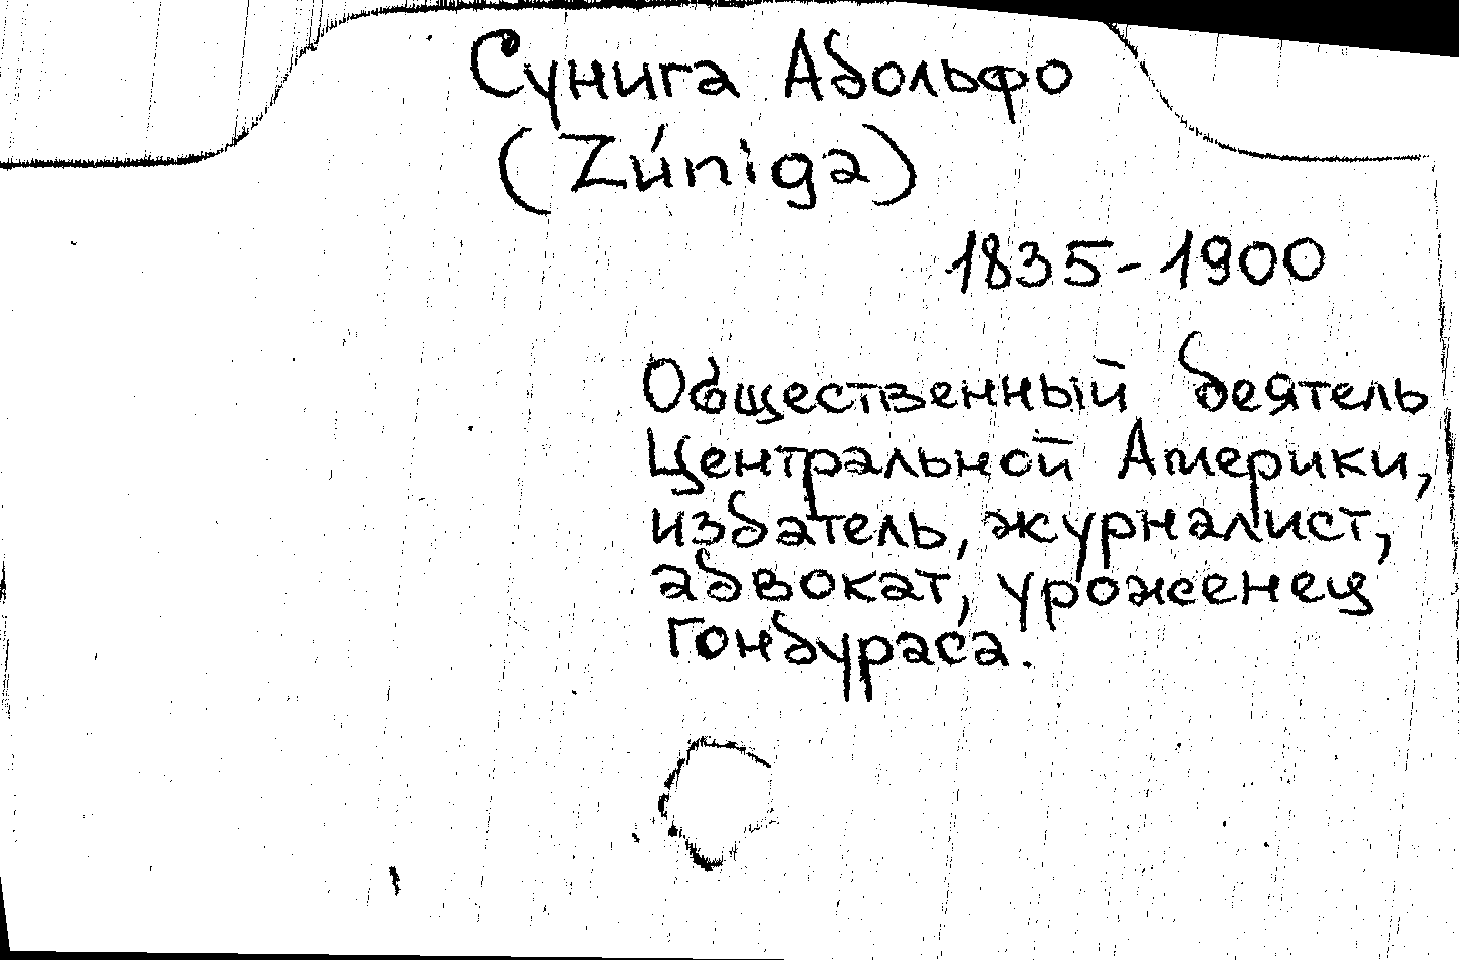 Сунига Адольфо
(Zúniga)
1835-1900
Общественный деятель
Центральной Америки,
издатель, журналист,
адвокат, уроженец
Гондураса.